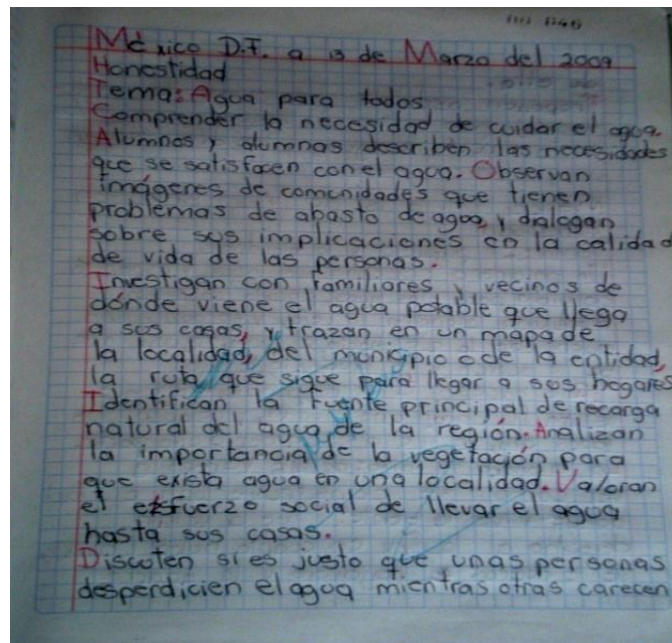 México D.F. a 13 de Marzo del 2009
Honestidad
Tema: Agua para todos
Comprender la necesidad de cuidar el agua.
Alumnos y alumnas describen las necesidades
que se satisfacen con el agua. Observan
imágenes de comunidades que tienen
problemas de abasto de agua, y dialogan
sobre sus implicaciones en la calidad
de vida de las personas.
Investigan con familiares y vecinos de
dónde viene el agua potable que llega
a sus casas, y trazan en un mapa de
la localidad, del municipio o de la entidad,
la ruta que sigue para llegar a sus hogares
Identifican la fuente principal de recarga
natural del agua de la región. Analizan
la importancia de la vegetación para
que exista agua en una localidad. Valoran
el esfuerzo social de llevar el agua
hasta sus casas.
Discuten si es justo que unas personas
desperdicien el agua mientras otras carecen